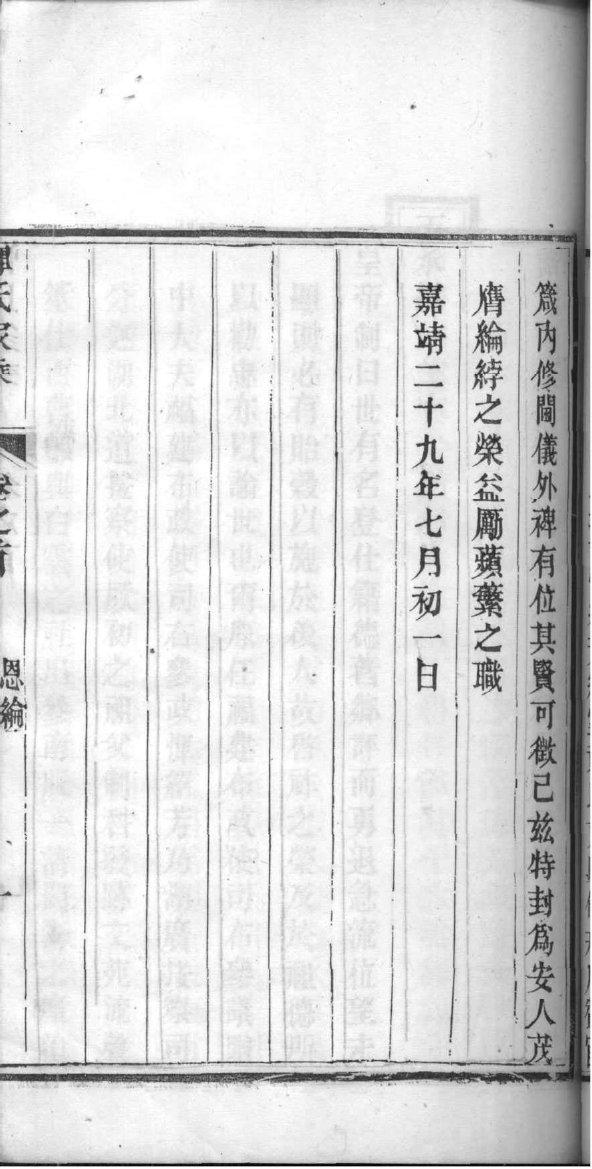 箴內修閫儀外禆有位其賢可徵已茲特封爲安人茂
膺綸綍之榮益勵蘋蘩之職
嘉靖二十九年七月初一日
氏家乘
卷之首
恩綸